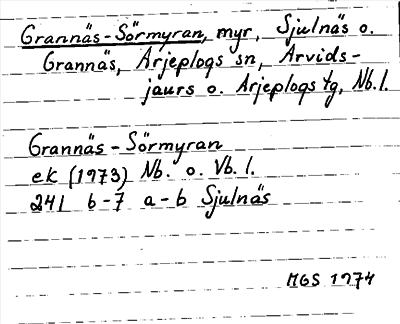 Grannäs-Sörmyran, myr, Sjulnäs o.
Grannäs, Arjeplogs sn, Arvids-
jaurs o. Arjeplogs tg, Nb. l.
Grannäs - Sörmyran
ek (1973) Nb. o. Vb. l.
241 6-7 a-b Sjulnäs
MGS 1974